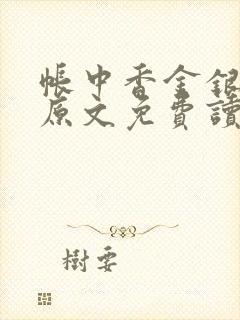 帳中香金銀
原文免費讀
樹要